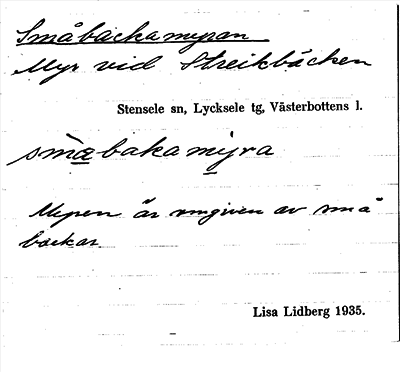 Småbäckamyran
Myr vid Streikbäcken
Stensele sn, Lycksele tg, Västerbottens l.
småbakamyra
Myren är omgiven av små
bäckar.
Lisa Lidberg 1935.